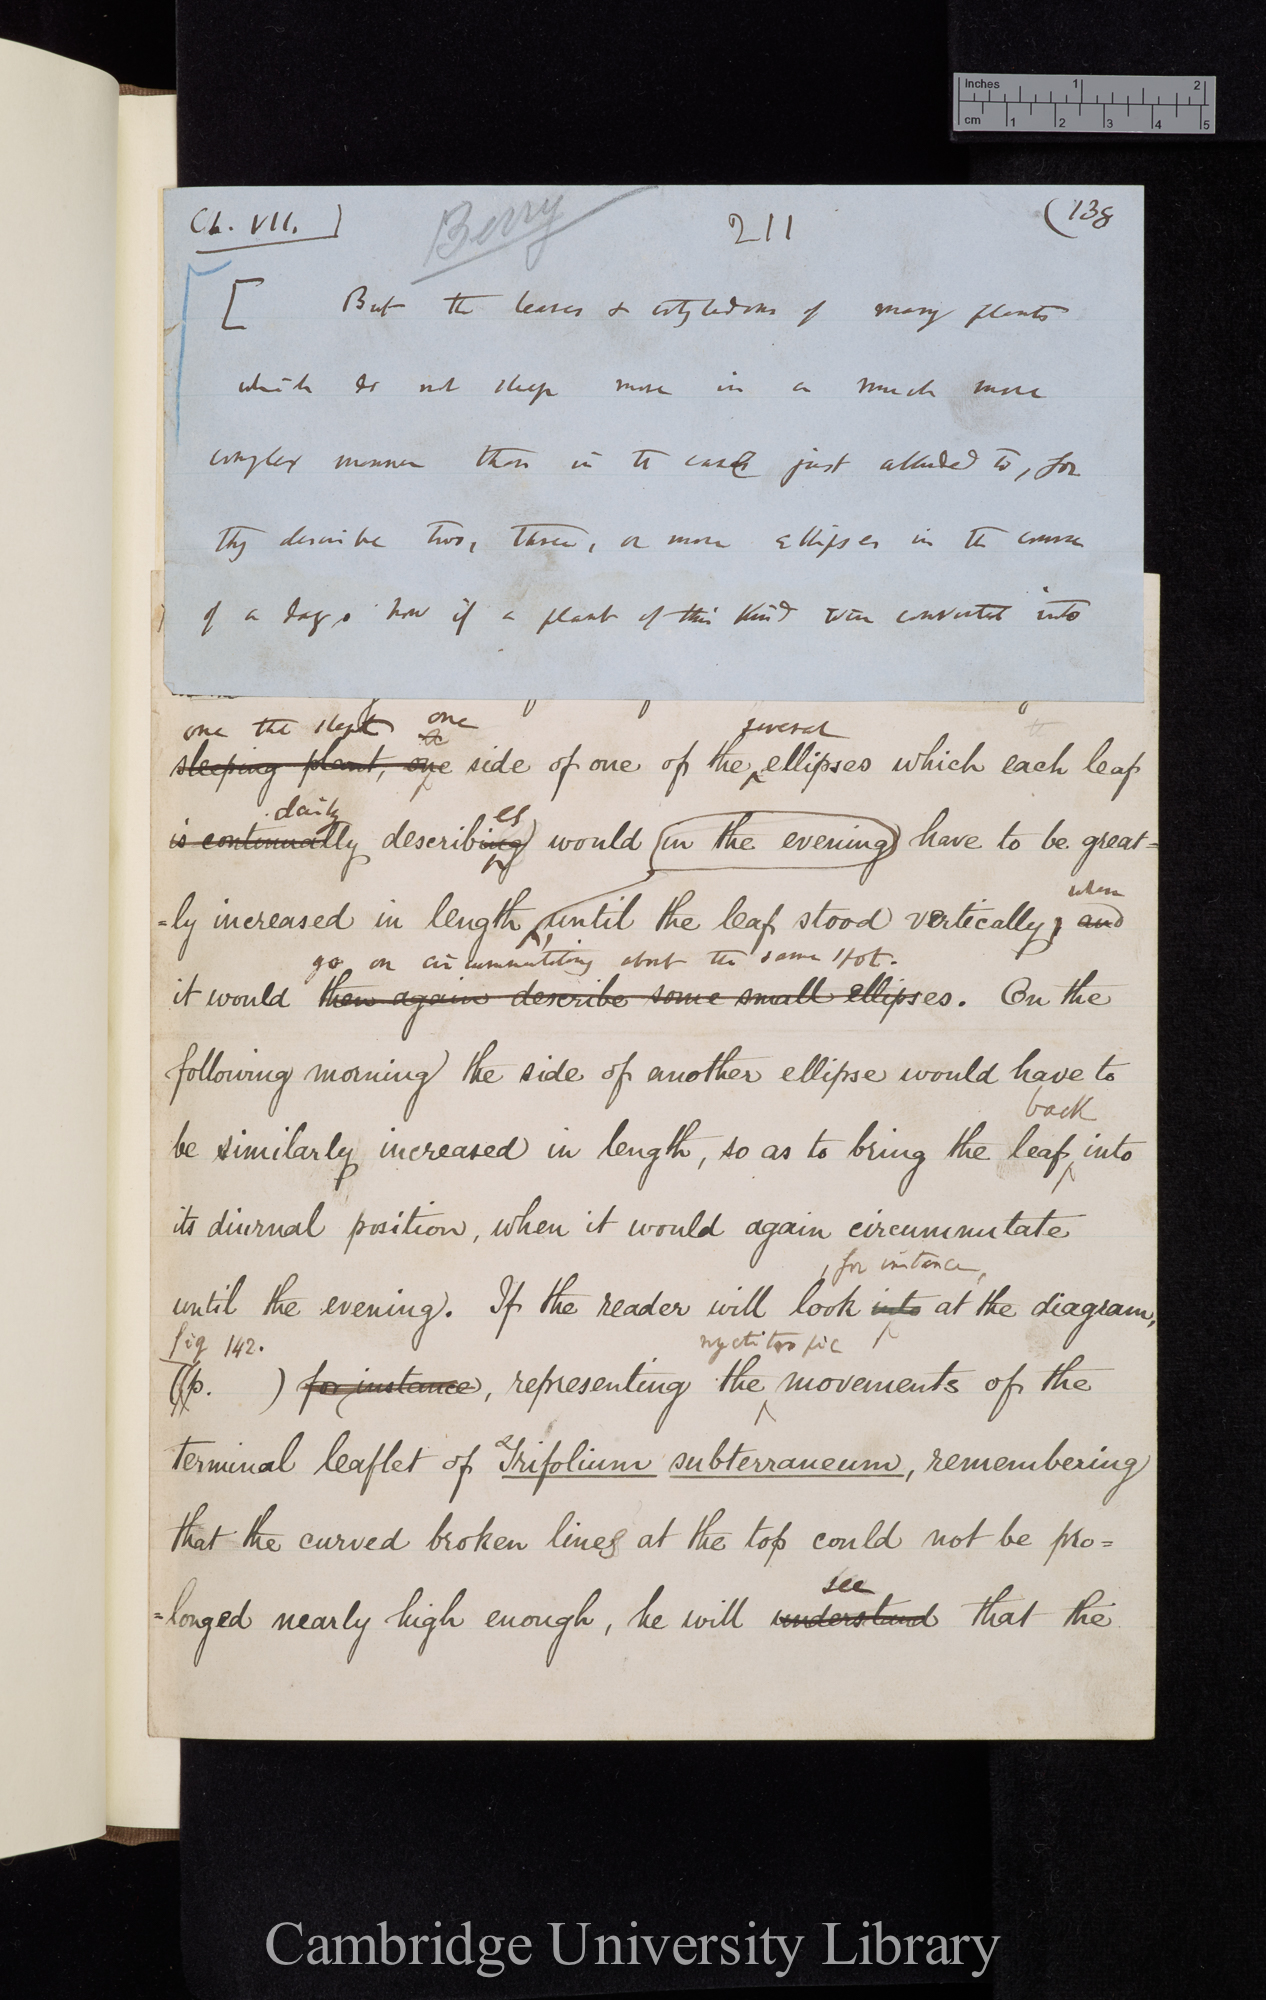 inches 1 2
cm 1 2 3 4 5
Ch. VII. Berry 211 (138
[ But the leaves & cotyledons of many plants
which do not sleep move in a much more
complex manner than in the cases just alluded to, for
they describe two, three, or more ellipses in the course
of a day. Now if a plant of this kind were converted into
one the slept one several
sleeping plant, one side of one of the ellipses which each leaf
daily es
is continually describing would in the evening have to be great=
when
=ly increased in length, until the leaf stood vertically, and
go on circumnutating about the same spot.
it would then again describe some small ellipses. On the
following morning the side of another ellipse would have to
back
be similarly increased in length, so as to bring the leaf into
its diurnal position, when it would again circumnutate
, for instance,
until the evening. If the reader will look into at the diagram,
fig 142. nyctitropic
(p. ) for instance, representing the movements of the
terminal leaflet of Trifolium subterraneum, remembering
that the curved broken lines at the top could not be pro=
see
=longed nearly high enough, he will understand that the
Cambridge University Library